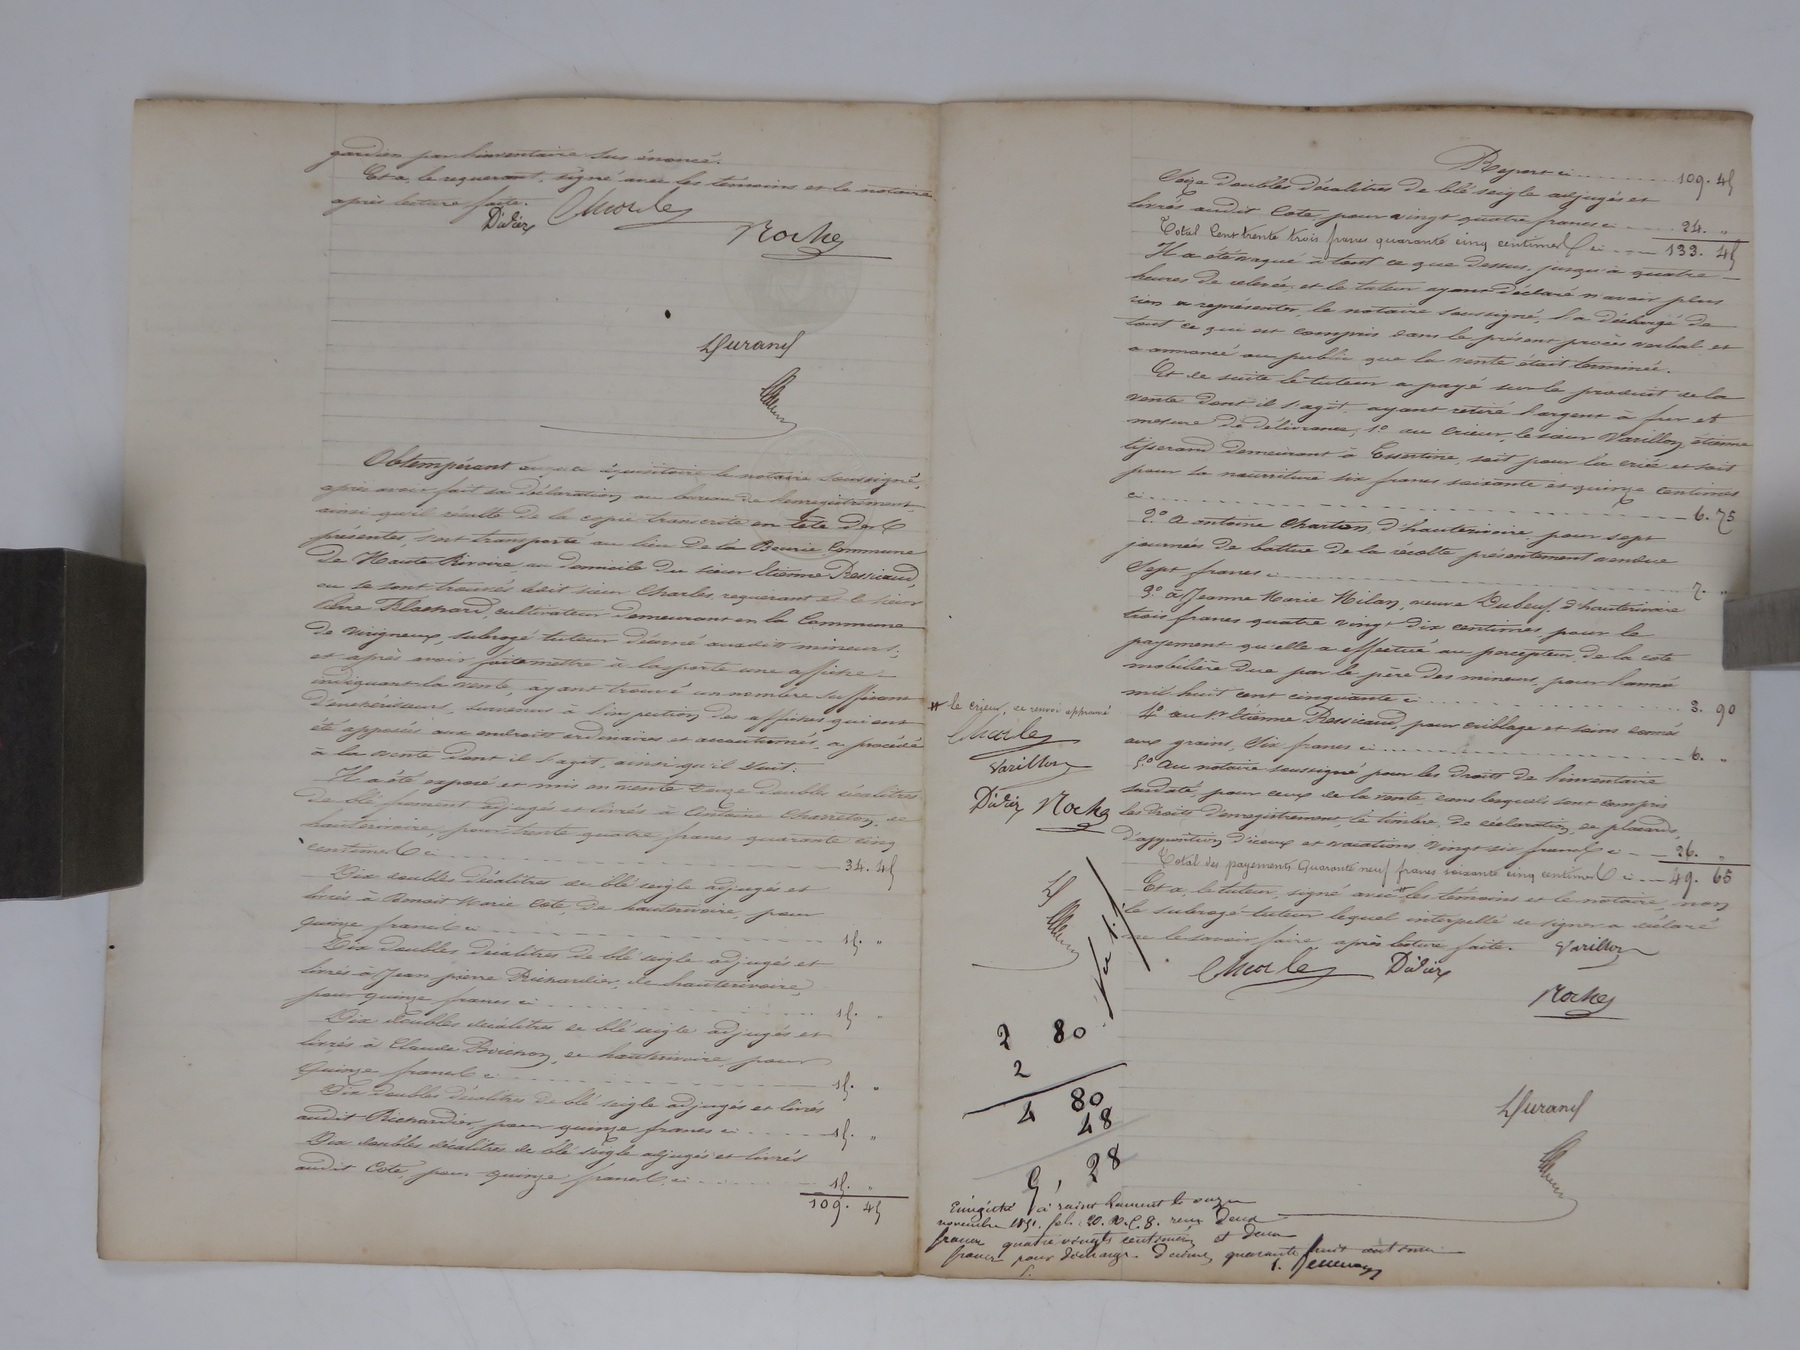 gardien par l'inventaire sus énoncé.
Et a, le requérant, signé avec les témoins et le notaire
après lecture faite.
Didier Charles
Roche
Durand
Obtempérant auquel réquisitoire le notaire soussigné,
après avoir fait sa déclaration au bureau de l'enregistrement
ainsi qu'il résulte de la copie transcrite en tête des
présentes, s'est transporté au lieu de la Bourie Commune
de Haute Rivoire, au domicile du sieur Etienne Ressicaud,
où se sont trouvés ledit sieur Charles, requérant et le sieur
Pierre Blachard, cultivateur demeurant en la Commune
de Virigneux, subrogé tuteur décerné auxdits mineurs;
et après avoir fait mettre à la porte une affiche
indiquant la vente, ayant trouvé un nombre suffisant
d'enchérisseurs, survenus à l'inspection des affiches qui ont
été apposées aux endroits ordinaires et accoutumés, a procédé
à la vente dont il s'agit, ainsi qu'il suit:
Il a été exposé et mis en vente douze doubles décalitres
de blé froment adjugés et livrés à Antoine Charreton, de
hauterivoire, pour trente quatre francs quarante cinq
centimes ci 34. 45
Dix doubles décalitres de blé seigle adjugés et
livrés à Benoit Marie Cote, de hauterivoire, pour
quinze francs ci 15. "
Dix doubles décalitres de blé seigle adjugés et
livrés à Jean pierre Richardier, de hauterivoire,
pour quinze francs ci 15. "
Dix doubles décalitres de blé seigle adjugés et
livrés à Claude, de hauterivoire, pour
quinze francs ci 15. "
Dix doubles décalitres de blé seigle adjugés et livrés
audit Richardier, pour quinze francs ci 15. "
Dix doubles décalitres de blé seigle adjugés et livrés
audit Cote, pour quinze francs ci 15. "
109. 45
Report ci 109. 45
Seize doubles décalitres de blé seigle adjugés et
livrés audit Cote, pour vingt quatre francs ci 24. "
Total Cent trente trois francs quarante cinq centimes ci 133. 45
Il a été vaqué à tout ce que dessus, jusqu'à quatre
heures de relevée, et le tuteur ayant déclaré n'avoir plus
rien à représenter, le notaire soussigné, l'a déchargé de
tout ce qui est compris dans le présent procès verbal et
a annoncé au public que la vente était terminée.
Et de suite le tuteur a payé sur le produit de la
vente dont il s'agit, ayant retiré l'argent à fur et
mesure de délivrance, 1.o au crieur, le sieur Varillon, étienne
tisserand demeurant à Essertine, soit pour la criée et soit
pour sa nourriture six francs soixante et quinze centimes
ci 6. 75
2.o A antoine Charton, d'hauterivoire, pour sept
journées de batture de la récolte présentement vendue
Sept francs ci 7. "
3.o à Jeanne Marie Milan, veuve Dubeuf, d'hauterivoire
trois francs quatre vingt dix centimes pour le
payement qu'elle a effectué au percepteur, de la cote
mobilière due par le père des mineurs, pour l'année
mil huit cent cinquante ci 3. 90
4.o au Sr Etienne Ressicaud, pour criblage et soins donnés
aux grains, Six francs ci 6. "
5.o Au notaire soussigné pour les droits de l'inventaire
susdaté, pour ceux de la vente, dans lesquels sont compris
les droits d'enregistrement, le timbre, de déclaration, de placards,
d'apposition d'iceux et vacations vingt six francs ci 26. "
Total des payements Quarante neuf francs soixante cinq centimes ci 49. 65
Et a, le tuteur, signé avec # les témoins et le notaire, non
le subrogé-tuteur lequel interpellé de signer a déclaré
ne le savoir faire, après lecture faite. Varillon
Charles Didier
Roche
Durand
# le crieur, ce renvoi approuvé
Charles
Varillon
Didier Roche
D
2 80
2
4 80
48
5, 28
Enregistré à saint Laurent le onze
novembre 1851. fol. 20. R. C. 8. reçu deux
francs quatre vingts centimes et deux
francs pour décharge. Décime quarante huit centimes